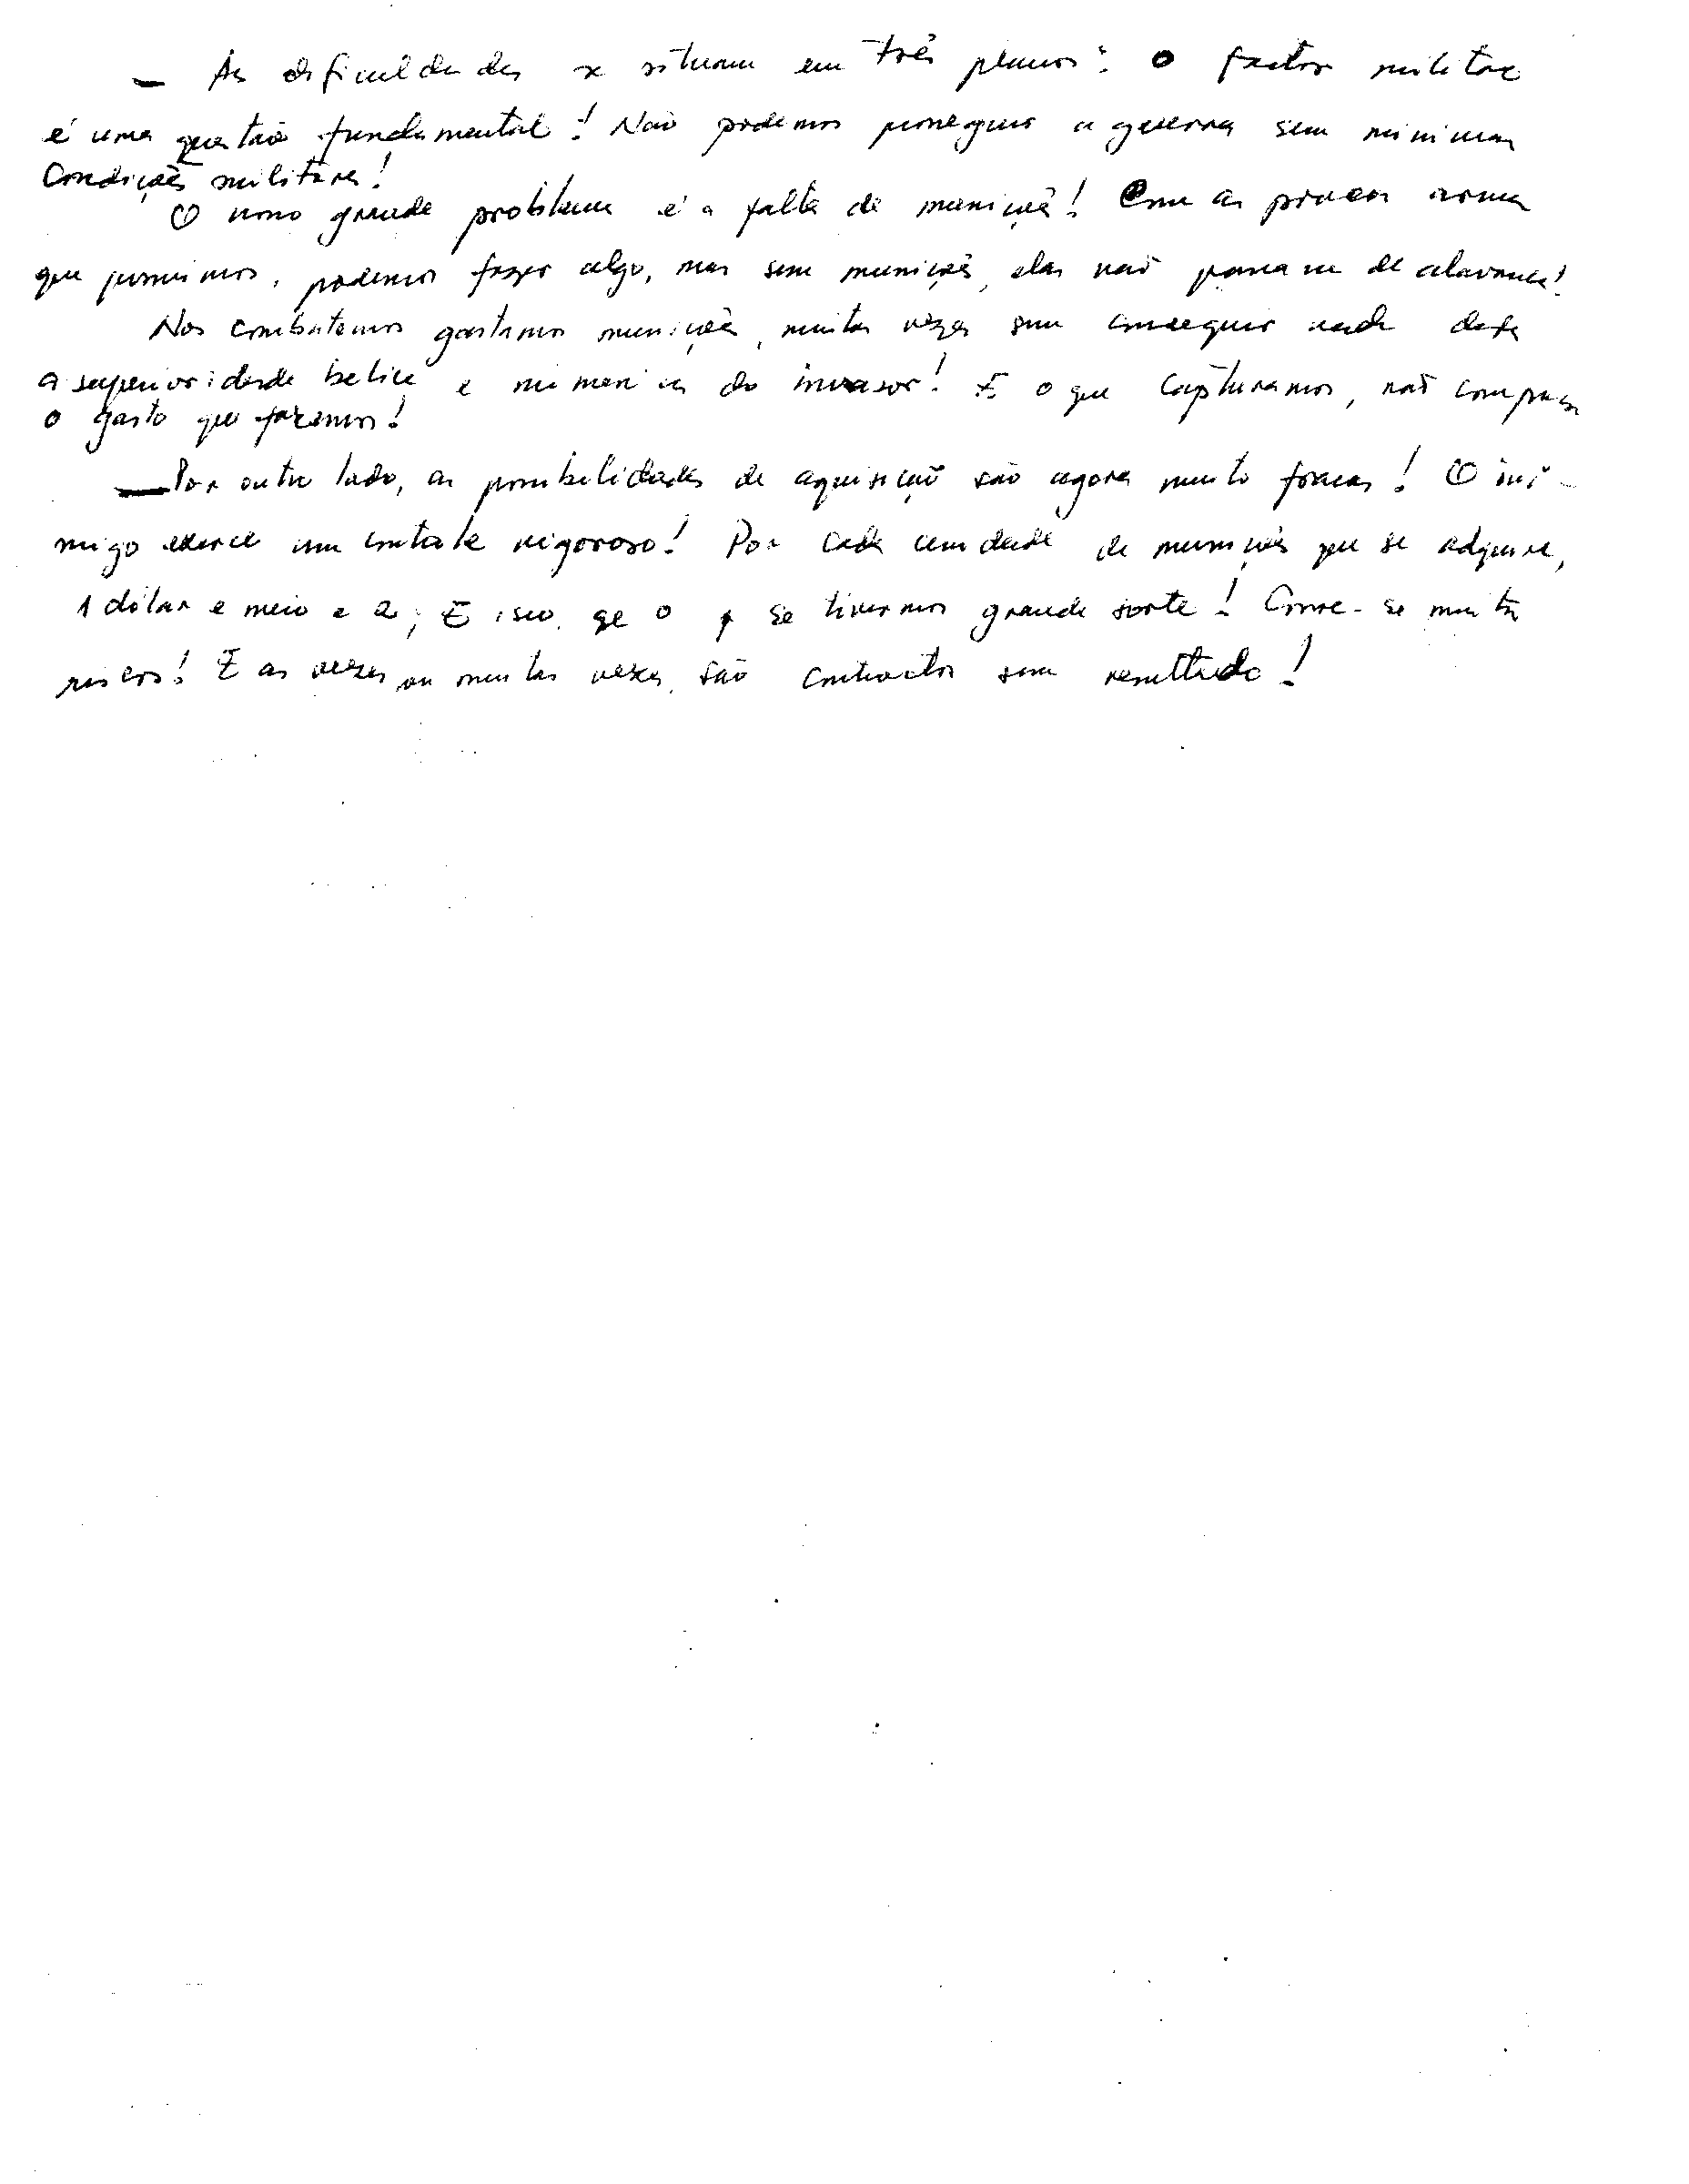 — As dificuldades se situam em três planos: o factor militar
é uma questão fundamental! Não podemos prosseguir a guerra sem minimas
condições militares!
O nosso grande problema é a falta de munições! Com as poucas armas
que possuimos, podemos fazer algo, mas sem munições, elas não passam de alavancas!
Nos combatemos gastamos munições, muitas vezes sem conseguir nada
a superioridade belica e numerica do invasor! E o que capturamos, não compensa
o gasto que fazemos!
— Por outro lado, as possibilidades de aquisição são agora muito fracas! O ini-
migo exerce um controle rigoroso! Por cada unidade de munições que se adquire,
1 dólar e meio e 2; E isso, se tivermos grande sorte! Corre-se muitos
riscos! E as vezes ou muitas vezes, são contractos sem resultado!